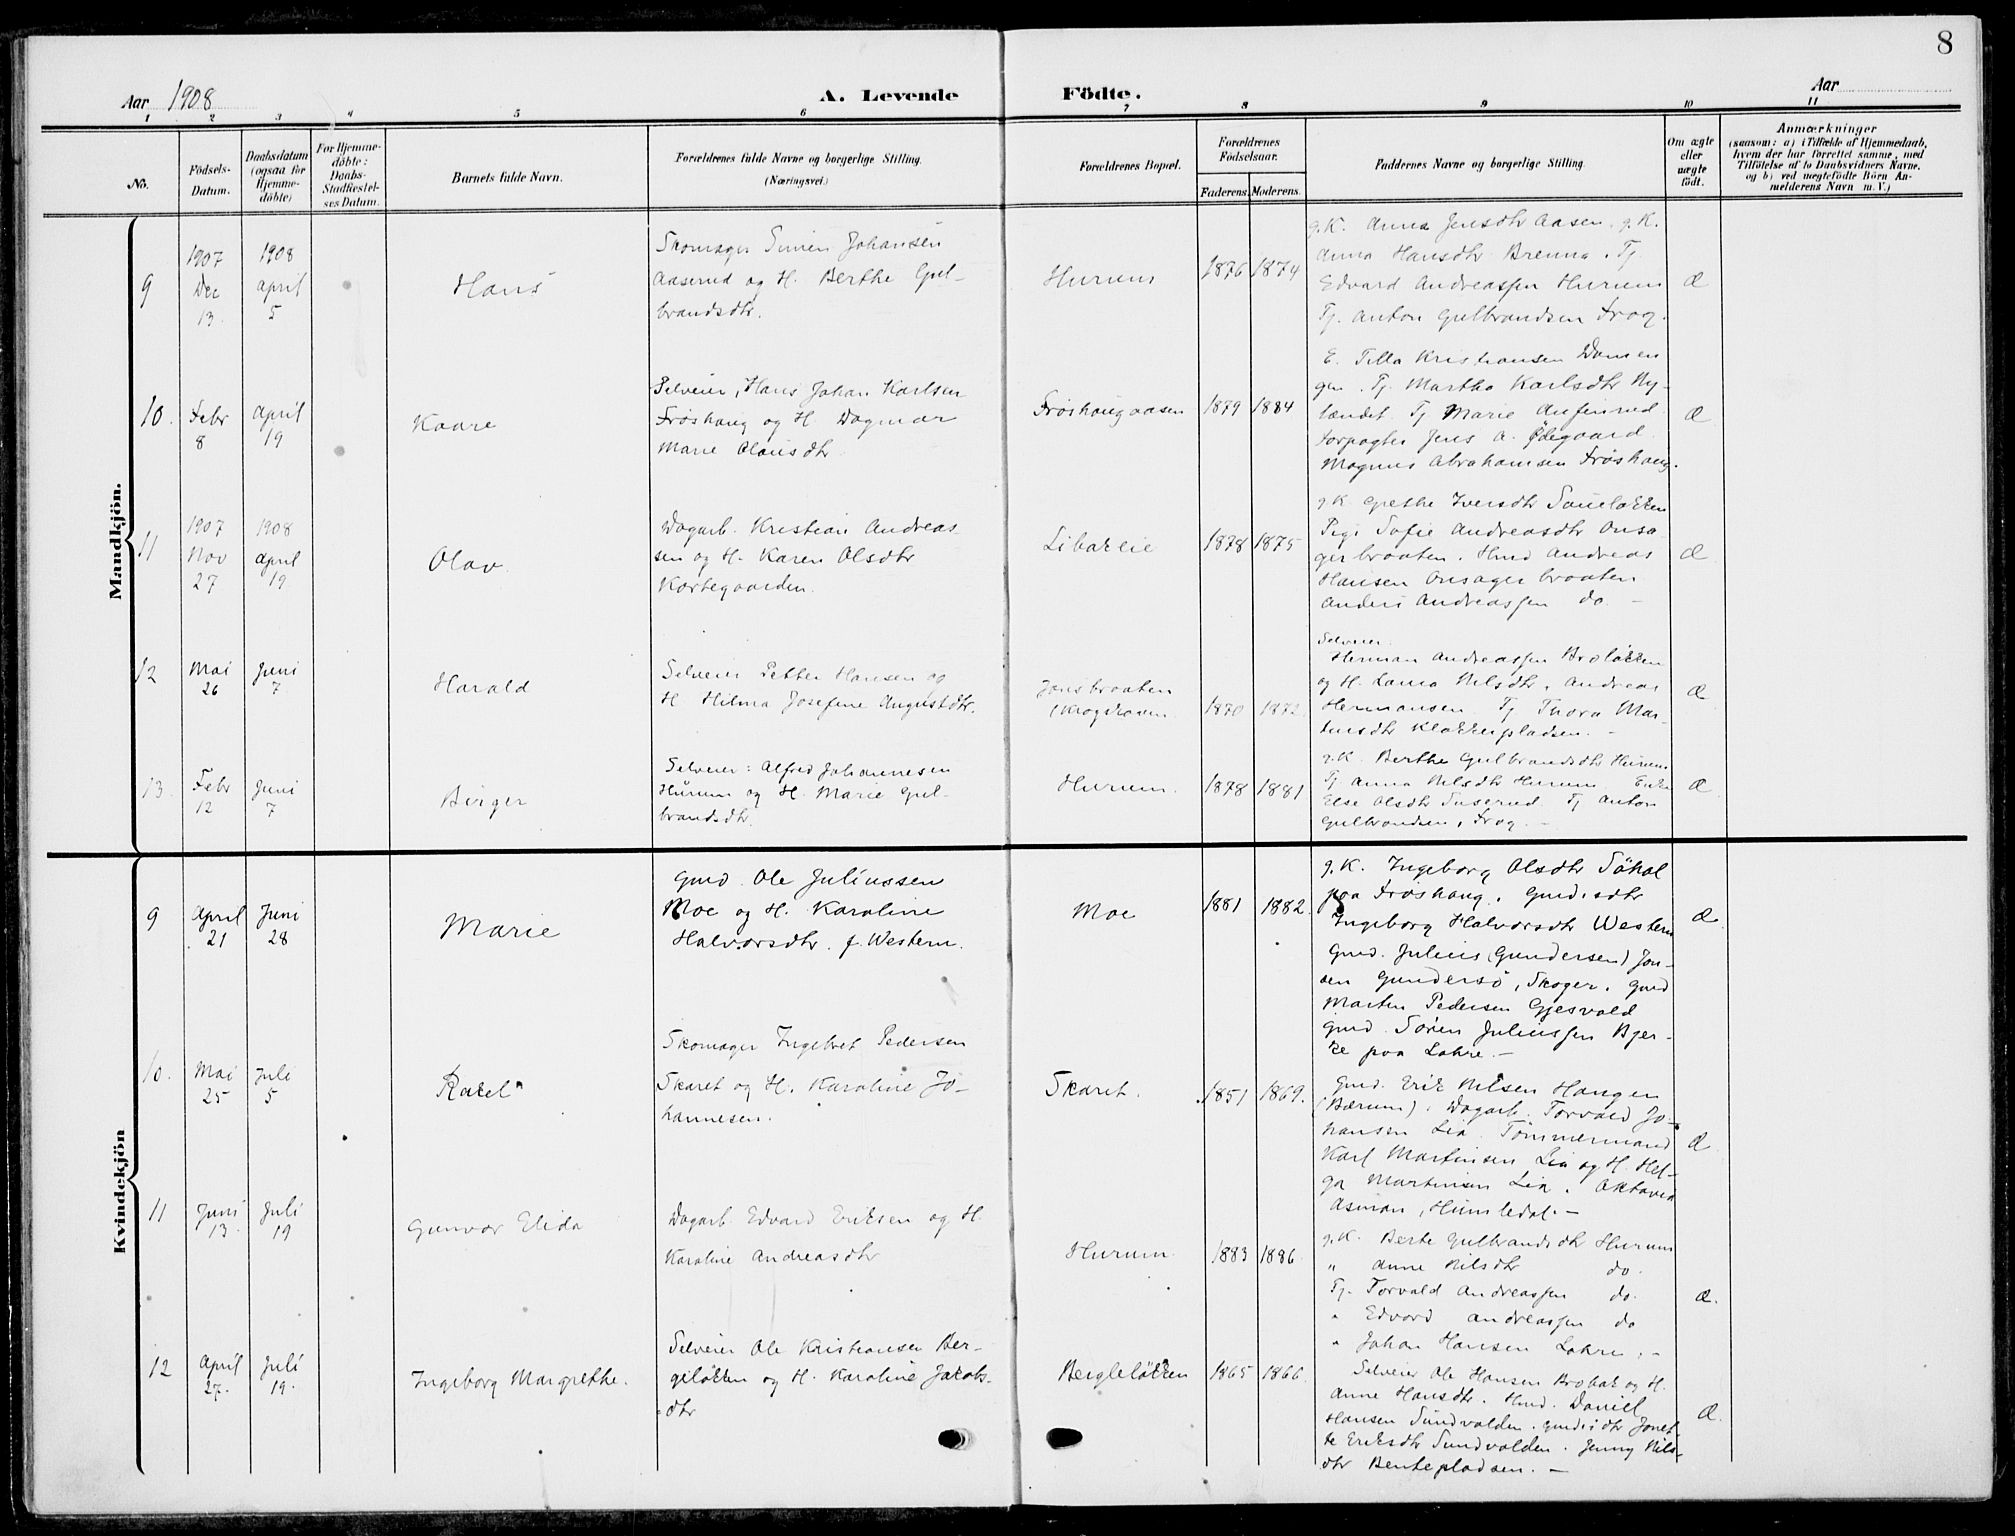 8
Aar 1908
A. Levende Födte.
Aar
1 2 3 4 5 6 7 8 9 10 11
No.
Födsels-
Datum.
Daabsdatum
(ogsaa for
Hjemme-
döbte)
For Hjemme-
döbte:
Daabs-
Stadfæstel-
ses Datum.
Barnets fulde Navn.
Forældrenes fulde Navne og borgerlige Stilling.
(Næringsvei.)
Forældrenes Bopæl.
Forældrenes
Födselsaar.
Faderens. Moderens.
Faddernes Navne og borgerlige Stilling.
Om ægte
eller
uægte
födt.
Anmærkninger
(saasom: a) i Tilfælde af Hjemmedaab,
hvem der har forrettet samme, med
Tilföielse af to Daabsvidners Navne,
og b) ved uægtefödte Börn An-
melderens Navn m. V.)
Mandkjön.
9
1907
Dec
13.
1908
April
5
Hans
Skomager Simen Johansen
Aaserud og H. Berthe Gul-
brandsdtr.
Hurum
1876 1874
g.K. Anna Jensdtr Aasen. g.K.
Anna Hansdtr Brenna. Tj.
Edvard Andreassen Hurum
Tj. Anton Gulbrandsen Frog.
Æ
10.
Febr
8
April
19
Kaare
Selveier, Hans Johan Karlsen
Frøshaug og H. Dagmar
Marie Olausdtr
Frøshaugaasen
1879 1884
E. Tilla Kristiansen Damen
gen. Tj. Martha Karlsdtr Ny-
lændet. Tj Marie
Forpagter Jens A. Ødegaard.
Magnus Abrahamsen Frøshaug.
Æ
11
1907
Nov
27
1908
April
19
Olav
Dagarb. Kristian Andreas-
sen og H. Karen Olsdtr
Kortegaarden.
Libaklie
1878 1875
g.K Grethe Iversdtr
Pige Sofie Andreasdtr Onsa
gerbraaten. Hmd Andreas
Hansen Onsagerbraaten
Anders Andreassen do. –
Æ
12
Mai
26
Juni
7
Harald
Selveier Petter Hansen og
H. Hilma Josefine Augustdtr.
Jonsbraaten
(Krogskoven
1870 1872
Selveier
Herman Andreassen Broløkken
og H. Lama Nilsdtr. Andreas
Hermansen. Tj Thora Mar-
tinsdtr Klokkerpladsen. –
Æ
13.
Febr
12
Juni
7
Birger
Selveier: Alfred Johannesen
Hurum og H. Marie Gul-
brandsdtr.
Hurum.
1878 1881
g.K. Berthe Gulbrandsdtr Hurum
Tj Anna Nilsdtr Hurum Enke
Else Olsdtr Tuserud. Tj Anton
Gulbrandsen, Frog. –
Æ
Kvindekjön
9
April
21
Juni
28
Marie
Gmd. Ole Juliussen
Moe og H. Karoline
Halvorsdtr. f. Western.
Moe
1881 1882.
g.K. Ingeborg Olsdtr Søhol
paa Frøshaug. Gmdsdtr
Ingeborg Halvorsdtr Western
Gmd. Julius (Gundersen) Jon-
sen Gundersø, Skoger. Gmd
Martin Pedersen Gjesvold
Gmd. Søren Juliussen Bjer-
ke paa Lohre. –
Æ
10.
Mai
25
Juli
5
Rakel
Skomager Ingebret Pedersen
Skaret og H. Karoline Jo-
hannesen.
Skaret.
1851 1869.
Gmd. Erik Nilsen Haugen
(Bærum). Dagarb. Torvald Jo-
hansen Lia. Tømmermand
Karl Martinsen Lia og H. Hel-
ga Martinsen Lia. Oktavia
Asman, Humledal. –
Æ
11
Juni
13
Juli
19
Gunvor Elida
Dagarb. Edvard Eriksen og H.
Karoline Andreasdtr
Hurum
1883 1886
g.K. Berte Gulbrandsdtr Hurum
" Anne Nilsdtr do.
Tj. Torvald Andreassen do.
" Edvard Andreassen do
" Johan Hansen Lohre. –
Æ.
12
April
27.
Juli
19.
Ingeborg Margrethe.
Selveier Ole Kristiansen Ber-
geløkken og H. Karoline Jakobs-
dtr
Bergleløkken
1865 1866
Selveier Ole Hansen Brobak og H.
Anne Hansdtr. Hmd. Daniel
Hansen Sundvolden. Gmdsdtr Jonet-
te Eriksdtr Sundvolden. Jenny Nils-
dtr Bentepladsen. –
Æ